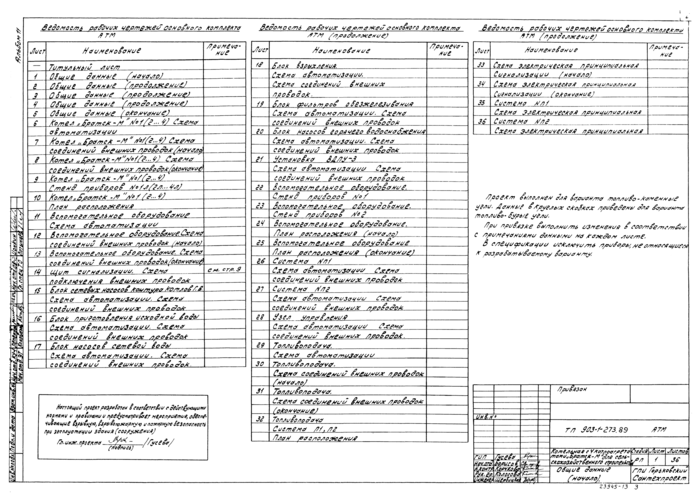 Альбом 11
Ведомость рабочих чертежей основного комплекта
АТМ
Лист Наименование Примечание
— Титульный лист
1 Общие данные (начало)
2 Общие данные (продолжение)
3 Общие данные (продолжение)
4 Общие данные (продолжение)
5 Общие данные (окончание)
6 Котел „Братск-М" №1(2...4) Схема
автоматизации
7 Котел „Братск-М" №1(2...4) Схема
соединений внешних проводок (начало)
8 Котел „Братск-М" №1(2...4) Схема
соединений внешних проводок (окончание)
9 Котел „Братск-М" №1(2...4)
Стенд приборов
10 Котел „Братск-М" №1(2...4)
План расположения
11 Вспомогательное оборудование
Схема автоматизации
12 Вспомогательное оборудование. Схема
соединений внешних проводок (начало)
13 Вспомогательное оборудование. Схема
соединений внешних проводок (окончание)
14 Щит сигнализации. Схема см. стр. 9
подключения внешних проводок
15 Блок сетевых насосов контура котлов
Схема автоматизации. Схема
соединений внешних проводок
16 Блок приготовления исходной воды
Схема автоматизации. Схема
соединений внешних проводок
17 Блок насосов сетевой воды
Схема автоматизации. Схема
соединений внешних проводок.
Настоящий проект разработан в соответствии с действующими
нормами и правилами и предусматривает мероприятия, обеспе-
чивающие взрывную, взрывопожарную и пожарную безопасность
при эксплуатации здания (сооружения)
Гл. инж. проекта /Гусева/
(подпись)
Ведомость рабочих чертежей основного комплекта
АТМ (продолжение)
Лист Наименование Примечание
18 Блок взрыхления
Схема автоматизации.
Схема соединений внешних
проводок.
19 Блок фильтров обезжелезивания
Схема автоматизации. Схема
соединений внешних проводок
20 Блок насосов горячего водоснабжения
Схема автоматизации. Схема
соединений внешних проводок.
21 Установка ВДПУ-3
Схема автоматизации Схема
соединений внешних проводок
22 Вспомогательное оборудование.
Стенд приборов №1
23 Вспомогательное оборудование.
Стенд приборов №2
24 Вспомогательное оборудование.
План расположения (начало)
25 Вспомогательное оборудование
План расположения (окончание)
26 Система КП1
Схема автоматизации Схема
соединений внешних проводок
27 Система КП2
Схема автоматизации Схема
соединений внешних проводок
28 Узел управления
Схема автоматизации. Схема
соединений внешних проводок
29 Топливоподача.
Схема автоматизации
30 Топливоподача.
Схема соединений внешних проводок
(начало)
31 Топливоподача.
Схема соединений внешних проводок
(окончание)
32 Топливоподача
Система П1, П2
План расположения
Ведомость рабочих чертежей основного комплекта
АТМ (продолжение)
Лист Наименование Примечание
33 Схема электрическая принципиальная
Сигнализации (начало)
34 Схема электрическая принципиальная
Сигнализации (окончание)
35 Система КП1
Схема электрическая принципиальная
36 Система КП2
Схема электрическая принципиальная
Проект выполнен для варианта топливо-каменные
угли. Данные в круглых скобках приведены для варианта
топливо-бурые угли.
При привязке выполнить изменения в соответствии
с примечаниями данными на каждом листе.
В спецификации исключить приборы, не относящиеся
к разрабатываемому варианту.
Привязан
Инв.№
ТП 903-1-273.89 АТМ
Стадия Лист Листов
РП 1 36
Общие данные
(начало)
ГПИ Горьковский
Сантехпроект
23945-13 3